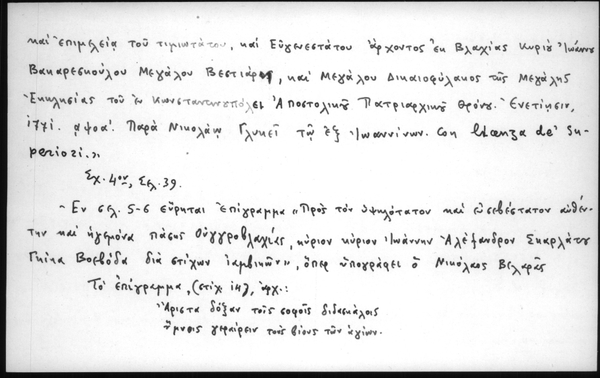 καὶ ἐπιμελείᾳ τοῦ τιμιωτάτου, καὶ Εὐγενεστάτου ἄρχοντος ἐκ Βλαχίας Κυρίου Ἰωάννου
Βακαρεσκούλου Μεγάλου Βεστιάρη, καὶ Μεγάλου Δικαιοφύλακος τῆς Μεγάλης
Ἐκκλησίας τοῦ ἐν Κωνσταντινουπόλει Ἀποστολικοῦ Πατριαρχικοῦ Θρόνου. Ἐνετίησιν,
1771. αψοα'. Παρὰ Νικολάῳ Γλυκεῖ τῷ ἐξ Ἰωαννίνων. Con licenza de' Su-
periori.»
Σχ. 4ον, Σελ. 39.
- Ἐν σελ. 5-6 εὕρηται ἐπίγραμμα «Πρὸς τὸν ὑψηλότατον καὶ εὐσεβέστατον αὐθέν-
την καὶ ἡγεμόνα πάσης Οὐγγροβλαχίας, κύριον κύριον Ἰωάννην Ἀλέξανδρον Σκαρλάτου
Γκίκα Βοεβόδα διὰ στίχων ἰαμβικῶν», ὅπερ ὑπογράφει ὁ Νικόλαος Βελαρᾶς
Τὸ ἐπίγραμμα, (στίχ. 14), ἄρχ.:
Ἄριστα δόξαν τοῖς σοφοῖς διδασκάλοις
ὕμνοις γεραίρειν τοὺς βίους τῶν ἁγίων.